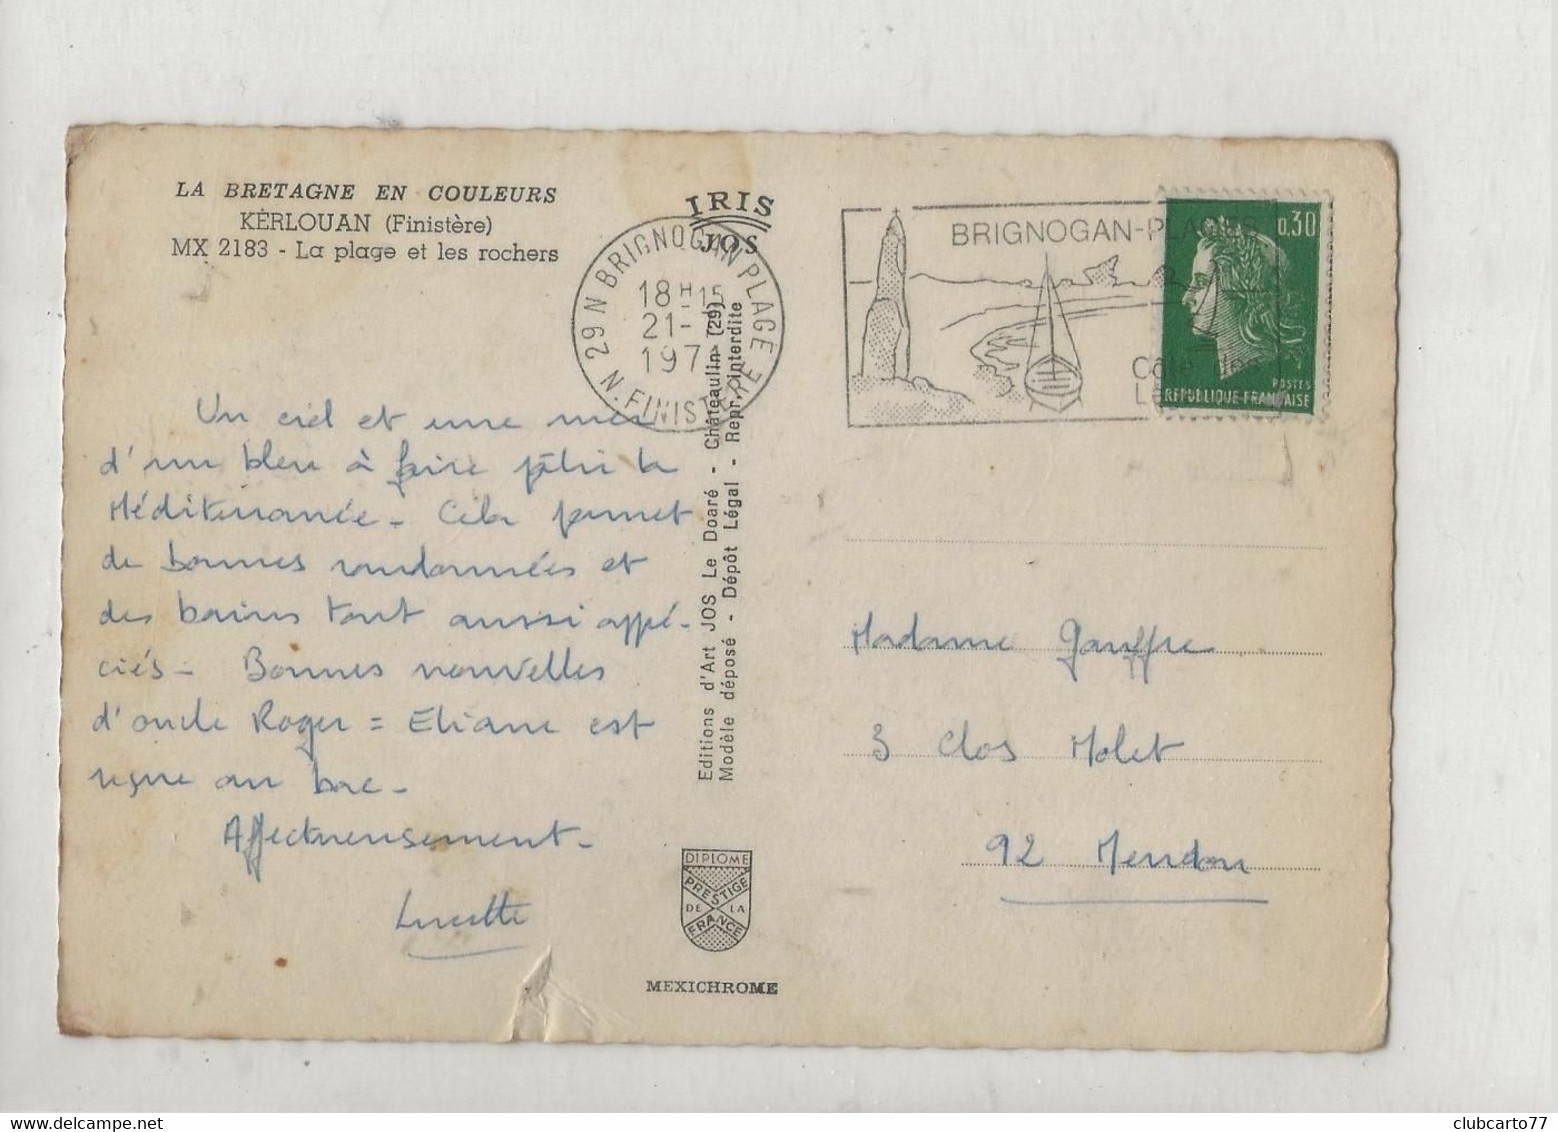 LA BRETAGNE EN COULEURS
KERLOUAN (Finistère)
MX 2183 - La plage et les rochers
IRIS
JOS
29 N BRIGNOGAN PLAGE
18 H 15
21-
197
N. FINISTERE
BRIGNOGAN-PLAGES
0.30
POSTES
REPUBLIQUE FRANÇAISE
Un ciel et une mer
d'un bleu à faire pâlir la
Méditerranée - Cela permet
de bonnes randonnées et
des bains tout aussi appré-
ciés - Bonnes nouvelles
d'oncle Roger = Eliane est
reçue au bac -
Affectueusement -
Lucette
Editions d'Art JOS Le Doaré - Châteaulin (29)
Modèle déposé - Dépôt Légal - Repr. interdite
DIPLOME
PRESTIGE
DE LA
FRANCE
MEXICHROME
Madame Gauffre
3 Clos Molet
92 Meudon
clubcarto77